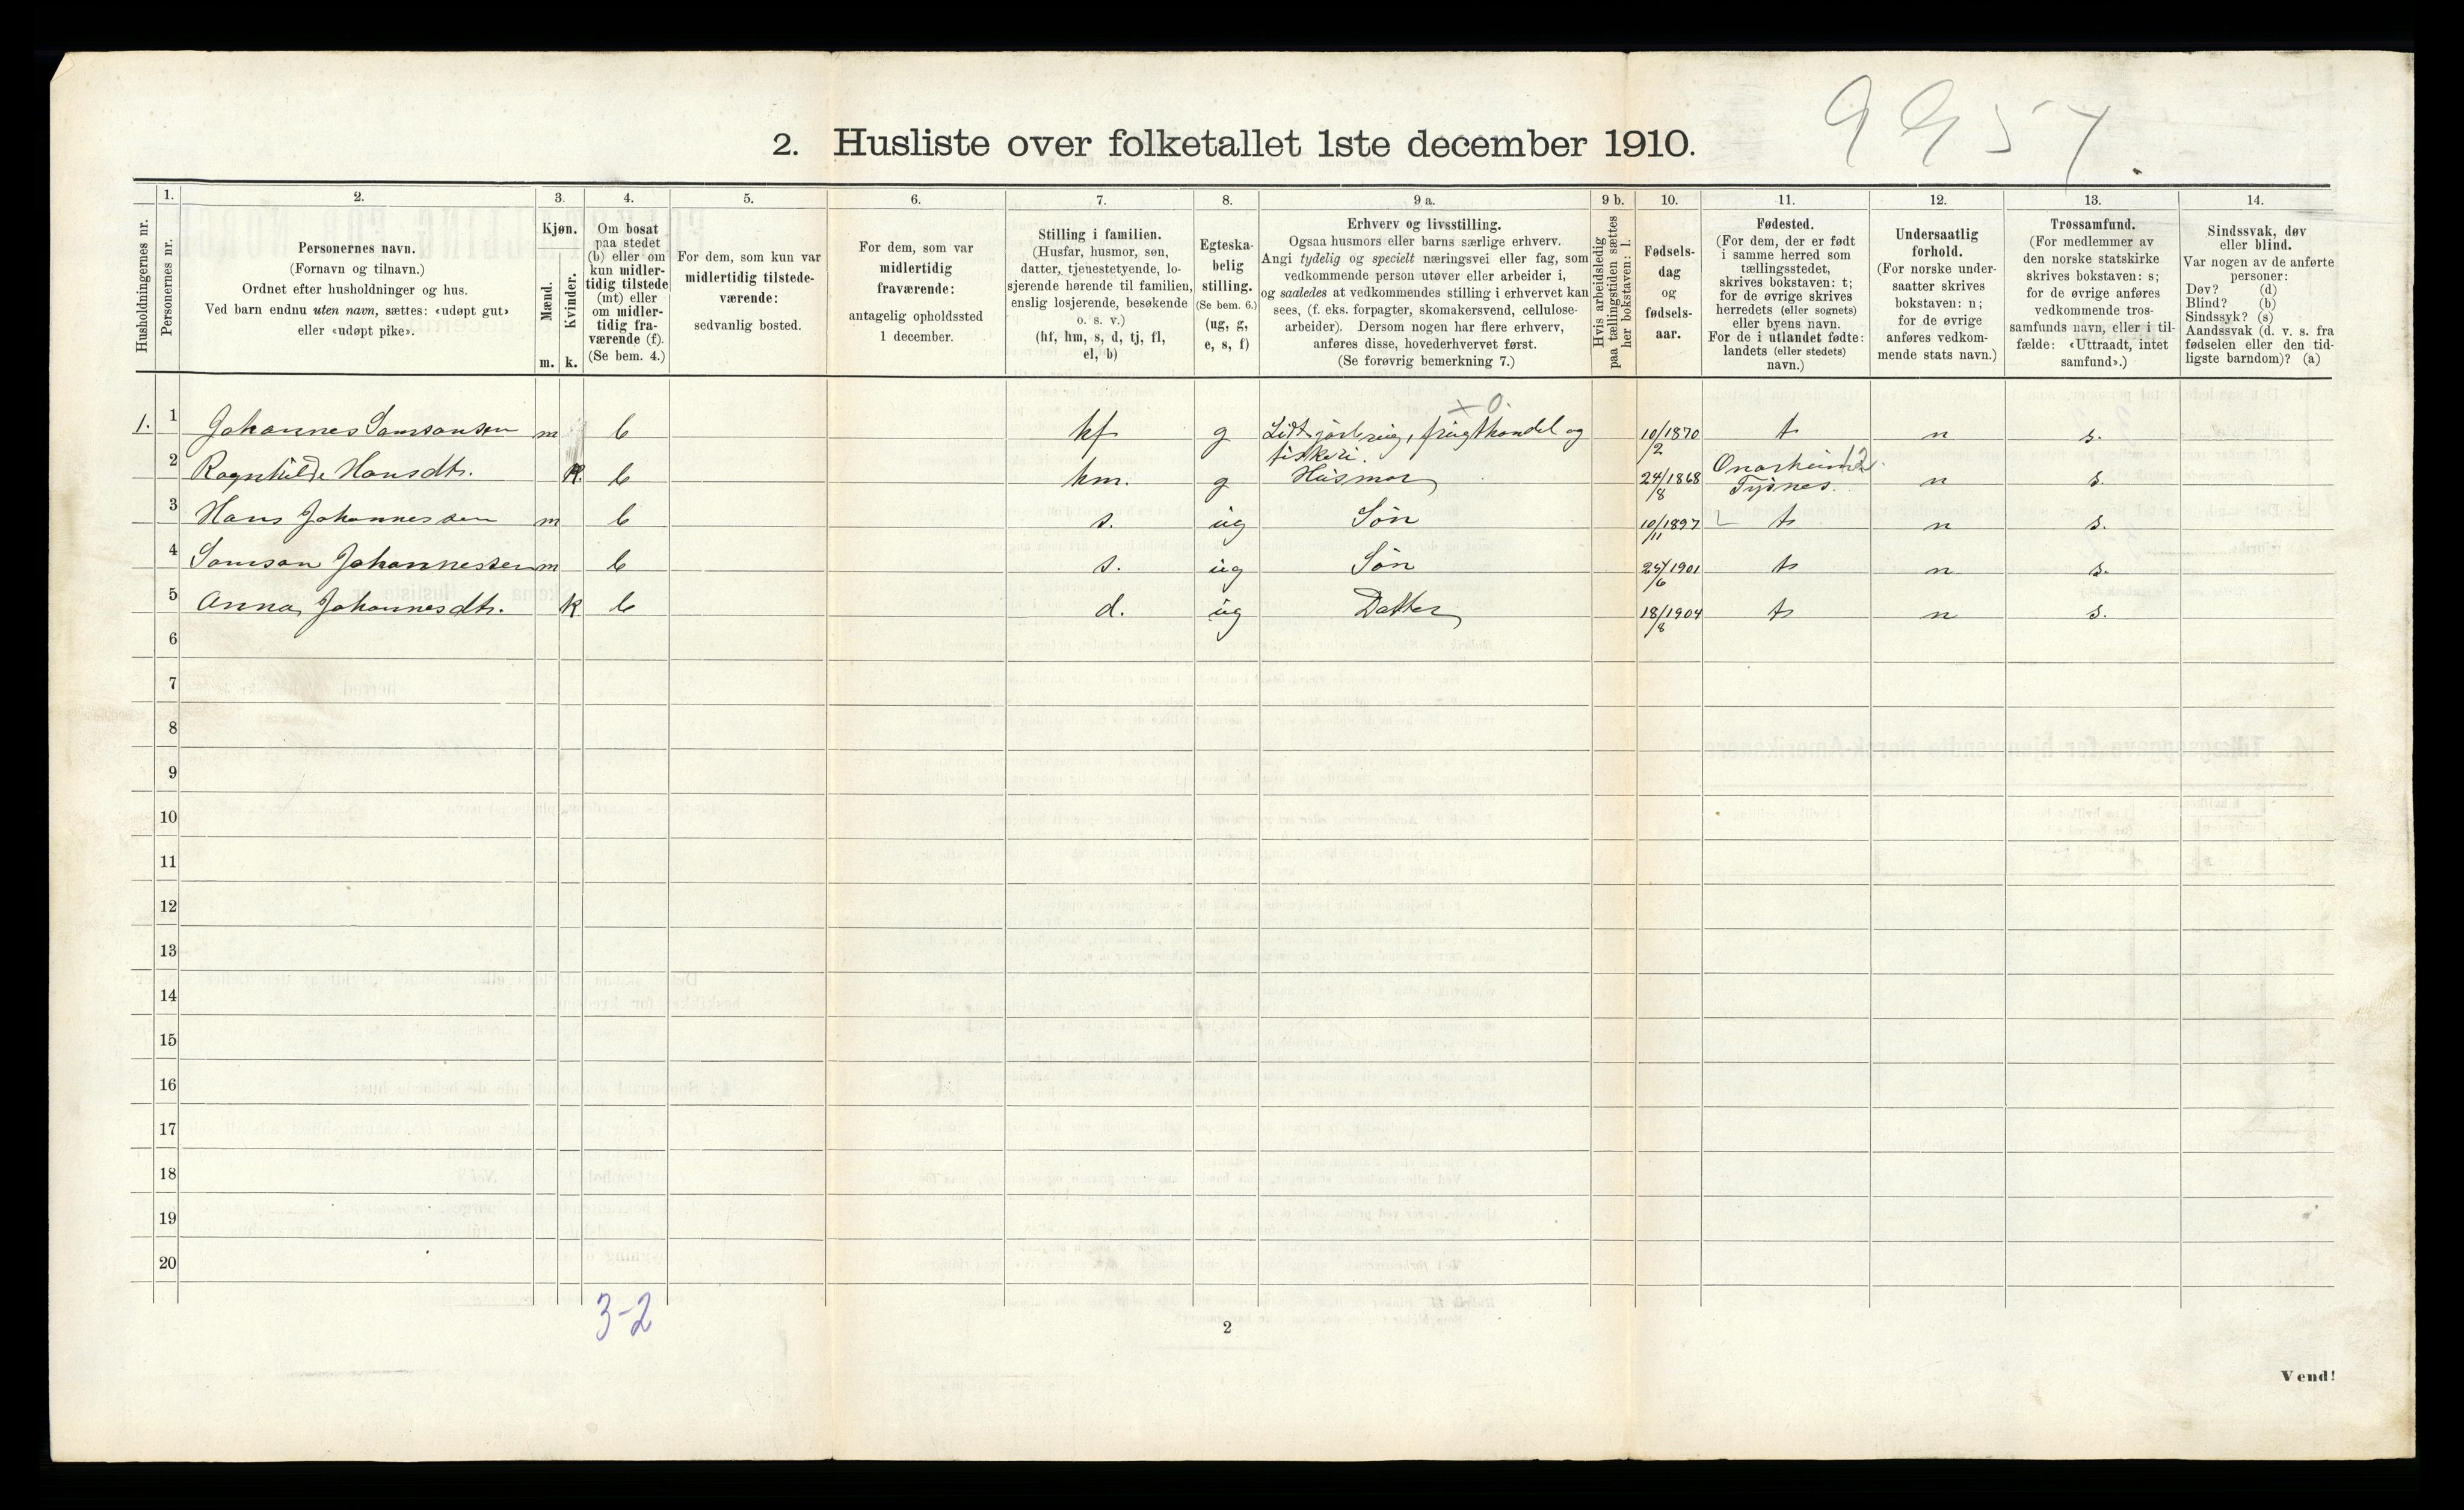 9957.
2. Husliste over folketallet 1ste december 1910.
Husholdningernes nr.
1.
Personernes nr.
2.
Personernes navn.
(Fornavn og tilnavn.)
Ordnet efter husholdninger og hus.
Ved barn endnu uten navn, sættes: «udøpt gut»
eller «udøpt pike».
3.
Kjøn.
Mænd.
Kvinder.
m. k.
4.
Om bosat
paa stedet
(b) eller om
kun midler-
tidig tilstede
(mt) eller
om midler-
tidig fra-
værende (f).
(Se bem. 4.)
5.
For dem, som kun var
midlertidig tilstede-
værende:
sedvanlig bosted.
6.
For dem, som var
midlertidig
fraværende:
antagelig opholdssted
1 december.
7.
Stilling i familien.
(Husfar, husmor, søn,
datter, tjenestetyende, lo-
sjerende hørende til familien,
enslig losjerende, besøkende
o. s. v.)
(hf, hm, s, d, tj, fl,
el, b)
8.
Egteska-
belig
stilling.
(Se bem. 6.)
(ug, g,
e, s, f)
9 a.
Erhverv og livsstilling.
Ogsaa husmors eller barns særlige erhverv.
Angi tydelig og specielt næringsvei eller fag, som
vedkommende person utøver eller arbeider i,
og saaledes at vedkommendes stilling i erhvervet kan
sees, (f. eks. forpagter, skomakersvend, cellulose-
arbeider). Dersom nogen har flere erhverv,
anføres disse, hovederhvervet først.
(Se forøvrig bemerkning 7.)
9 b.
Hvis arbeidsledig
paa tællingstiden sættes
her bokstaven: l.
10.
Fødsels-
dag
og
fødsels-
aar.
11.
Fødested.
(For dem, der er født
i samme herred som
tællingsstedet,
skrives bokstaven: t;
for de øvrige skrives
herredets (eller sognets)
eller byens navn.
For de i utlandet fødte:
landets (eller stedets)
navn.)
12.
Undersaatlig
forhold.
(For norske under-
saatter skrives
bokstaven: n;
for de øvrige
anføres vedkom-
mende stats navn.)
13.
Trossamfund.
(For medlemmer av
den norske statskirke
skrives bokstaven: s;
for de øvrige anføres
vedkommende tros-
samfunds navn, eller i til-
fælde: «Uttraadt, intet
samfund».)
14.
Sindssvak, døv
eller blind.
Var nogen av de anførte
personer:
Døv? (d)
Blind? (b)
Sindssyk? (s)
Aandssvak (d. v. s. fra
fødselen eller den tid-
ligste barndom)? (a)
x 0.
1. 1 Johannes Samsonsen m b hf g Lidt jordbrug, frugthandel og fiskeri. 10/2 1870 t n s.
2 Ragnhilde Hansdtr. k. b hm. g Husmor 24/8 1868 Onarheim 12 Tysnes. n s.
3 Hans Johannessen m b s. ug Søn 10/11 1897 t n s.
4 Samson Johannessen m b s. ug Søn /6 1901 t n s.
5 Anna Johannesdtr. k b d. ug Datter 18/8 1904 t n s.
6
7
8
9
10
11
12
13
14
15
16
17
18
19
20
3-2
2
Vend!